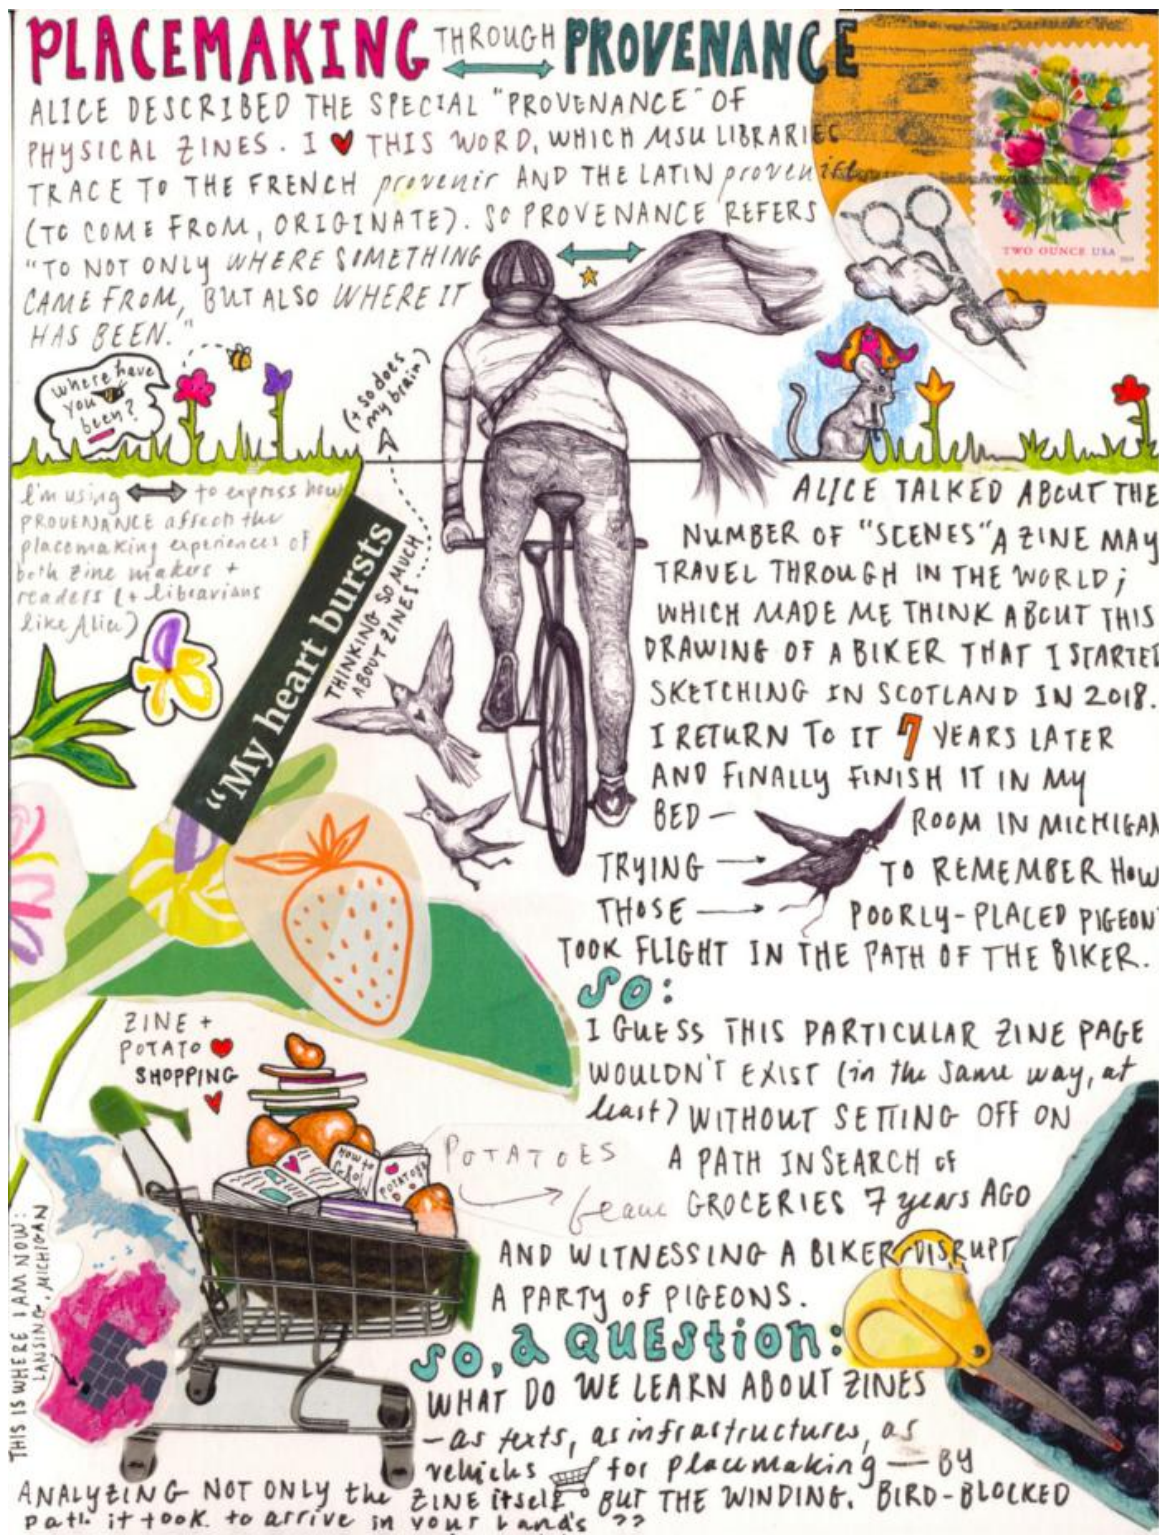 PLACEMAKING THROUGH PROVENANCE
ALICE DESCRIBED THE SPECIAL "PROVENANCE" OF
PHYSICAL ZINES. I ♥ THIS WORD, WHICH MSU LIBRARIES
TRACE TO THE FRENCH provenir AND THE LATIN provenire
(TO COME FROM, ORIGINATE). SO PROVENANCE REFERS
"TO NOT ONLY WHERE SOMETHING
CAME FROM, BUT ALSO WHERE IT
HAS BEEN."
TWO OUNCE USA
where have
you
been?
(+ so does
my brain)
I'm using ↔ to express how
PROVENANCE affects the
placemaking experiences of
both zine makers +
readers (+ librarians
like Alice)
"My heart bursts
THINKING SO MUCH
ABOUT ZINES...
ALICE TALKED ABOUT THE
NUMBER OF "SCENES" A ZINE MAY
TRAVEL THROUGH IN THE WORLD;
WHICH MADE ME THINK ABOUT THIS
DRAWING OF A BIKER THAT I STARTED
SKETCHING IN SCOTLAND IN 2018.
I RETURN TO IT 7 YEARS LATER
AND FINALLY FINISH IT IN MY
BED – ROOM IN MICHIGAN
TRYING → TO REMEMBER HOW
THOSE → POORLY-PLACED PIGEON
TOOK FLIGHT IN THE PATH OF THE BIKER.
SO:
I GUESS THIS PARTICULAR ZINE PAGE
WOULDN'T EXIST (in the same way, at
least) WITHOUT SETTING OFF ON
A PATH IN SEARCH OF
GROCERIES 7 years AGO
AND WITNESSING A BIKER DISRUPT
A PARTY OF PIGEONS.
ZINE +
POTATO ♥
SHOPPING
HOW to
GROW
POTATOES
POTATOES
THIS IS WHERE I AM NOW:
LANSING, MICHIGAN
SO, a QUESTION:
WHAT DO WE LEARN ABOUT ZINES
– as texts, as infrastructures, as
vehicles for placemaking – BY
ANALYZING NOT ONLY the ZINE itself, BUT THE WINDING, BIRD-BLOCKED
path it took to arrive in your hands ??